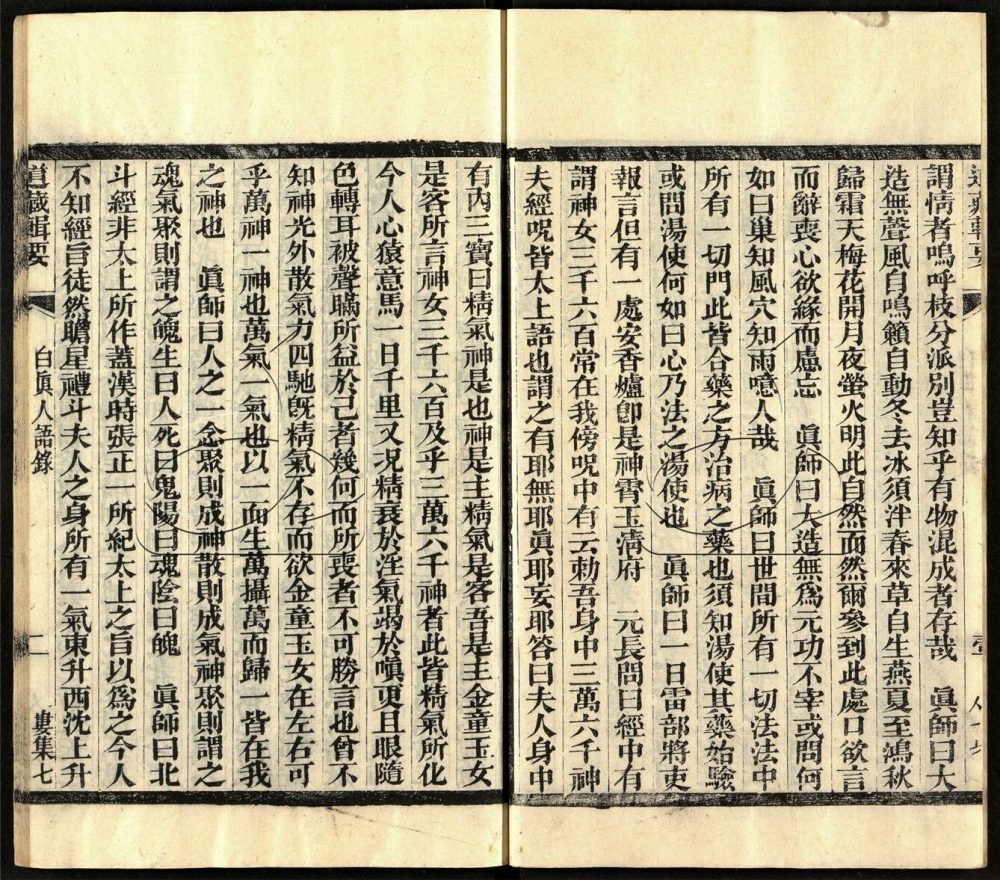 謂情者嗚呼枝分派別豈知乎有物混成者存哉　眞師曰大
造無聲風自鳴籟自動冬去冰須泮春來草自生燕夏至鴻秋
歸霜天梅花開月夜螢火明此自然而然爾參到此處口欲言
而辭喪心欲緣而慮忘　眞師曰大造無爲元功不宰或問何
如曰巢知風穴知雨噫人哉　眞師曰世間所有一切法法中
所有一切門此皆合藥之方治病之藥也須知湯使其藥始驗
或問湯使何如曰心乃法之湯使也　眞師曰一日雷部將吏
報言但有一處安香爐卽是神霄玉淸府　元長問曰經中有
謂神女三千六百常在我傍呪中有云勅吾身中三萬六千神
夫經呪皆太上語也謂之有耶無耶眞耶妄耶答曰夫人身中
有內三寶曰精氣神是也神是主精氣是客吾是主金童玉女
是客所言神女三千六百及乎三萬六千神者此皆精氣所化
今人心猿意馬一日千里又況精衰於淫氣竭於嗔更且眼隨
色轉耳被聲瞞所益於己者幾何而所喪者不可勝言也曾不
知神光外散氣力四馳旣精氣不存而欲金童玉女在左右可
乎萬神一神也萬氣一氣也以一而生萬攝萬而歸一皆在我
之神也　眞師曰人之一念聚則成神散則成氣神聚則謂之
魂氣聚則謂之魄生曰人死曰鬼陽曰魂陰曰魄　眞師曰北
斗經非太上所作蓋漢時張正一所紀太上之旨以爲之今人
不知經旨徒然瞻星禮斗夫人之身所有一氣東升西沈上升
道藏輯要　白眞人語錄　二　婁集七